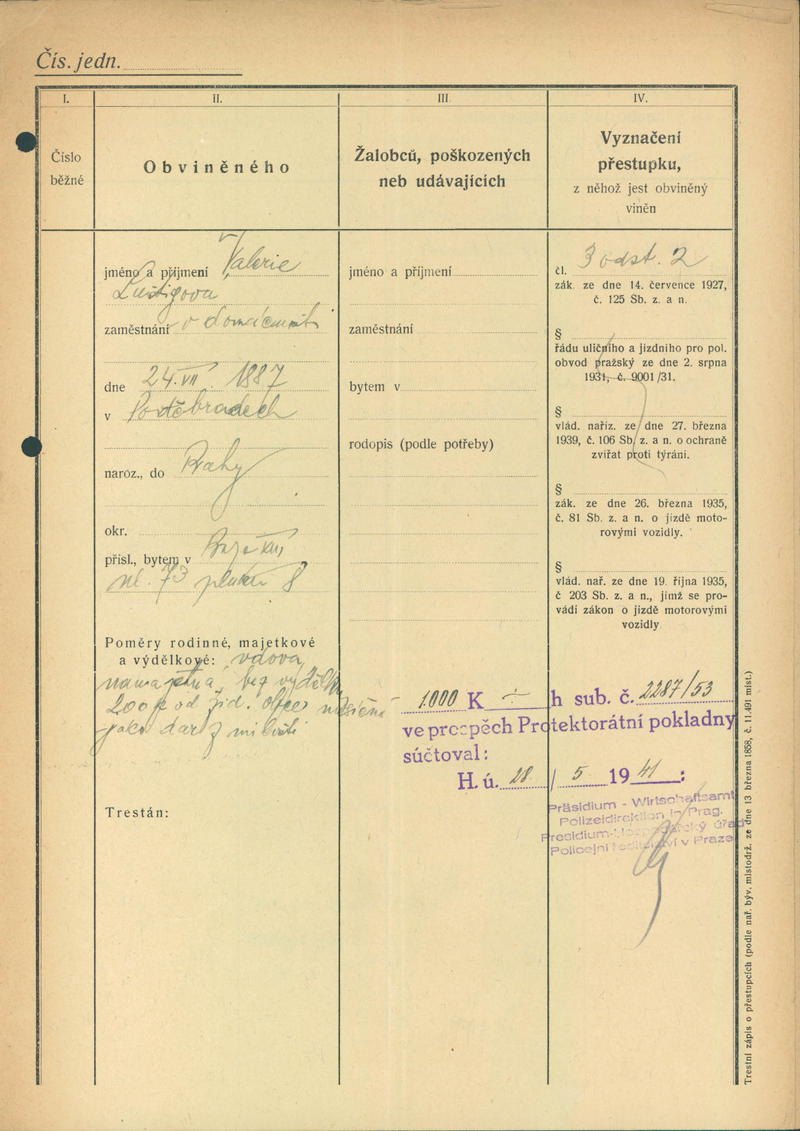 Čís. jedn.
I.
II.
III.
IV.
Číslo
běžné
Obviněného
Žalobců, poškozených
neb udávajících
Vyznačení
přestupku,
z něhož jest obviněný
viněn
jméno a příjmení Valerie
Lustigova
zaměstnání v domácnosti
dne 24. VII. 1887
v Poděbradech
naroz., do Prahy
okr.
přísl., bytem v
ul. 73 pluku 8
Poměry rodinné, majetkové
a výdělkové: vdova,
nemajetna, bez výdělku
200 K od žid. obce měsíčně
jako dar z milosti
Trestán:
jméno a příjmení
zaměstnání
bytem v
rodopis (podle potřeby)
čl. 3 odst. 2
zák. ze dne 14. července 1927,
č. 125 Sb. z. a n.
§
řádu uličního a jízdního pro pol.
obvod pražský ze dne 2. srpna
1931, č. 9001/31.
§
vlád. naříz. ze dne 27. března
1939, č. 106 Sb. z. a n. o ochraně
zvířat proti týrání.
§
zák. ze dne 26. března 1935,
č. 81 Sb. z. a n. o jízdě moto-
rovými vozidly.
§
vlád. nař. ze dne 19. října 1935,
č 203 Sb. z. a n., jímž se pro-
vádí zákon o jízdě motorovými
vozidly
1000 K h sub. č. 2287/53
ve prospěch Protektorátní pokladny
súčtoval:
H. ú. 28 / 5 1941:
Präsidium - Wirtschaftsamt
Polizeidirektion in Prag.
Presidium-Hospodářský úřad
Policejní ředitelství v Praze
Trestní zápis o přestupcích (podle nař. býv. místodrž. ze dne 13 března 1868, č. 11.491 míst.)